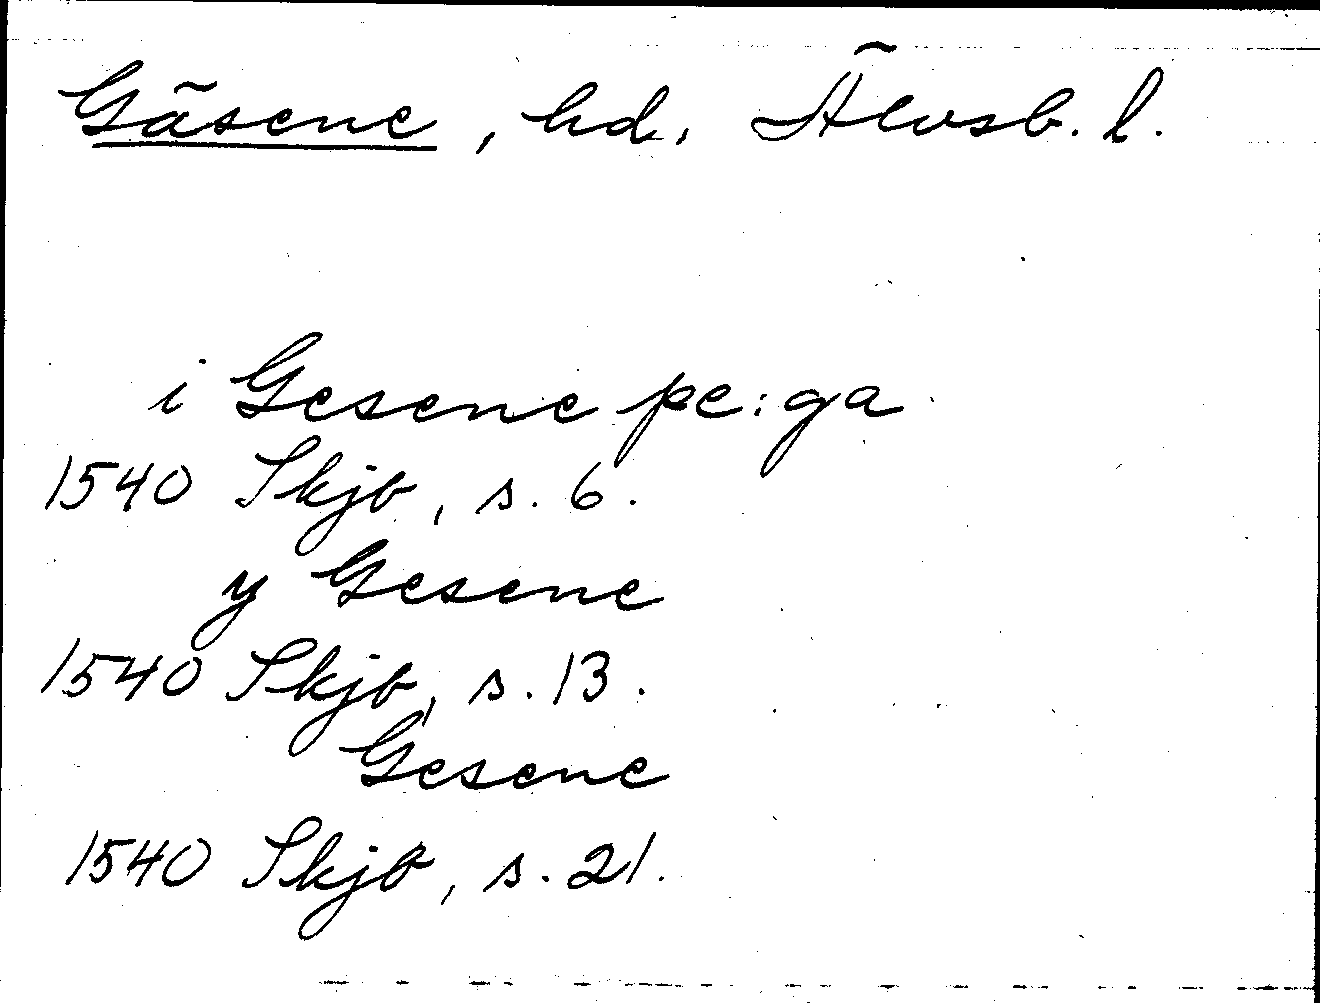 Gäsene, hd. Älvsb. l.
i Gesene pe:ga
1540 Skjb, s. 6.
y Gesene
1540 Skjb, s. 13.
Gesene
1540 Skjb, s. 21.